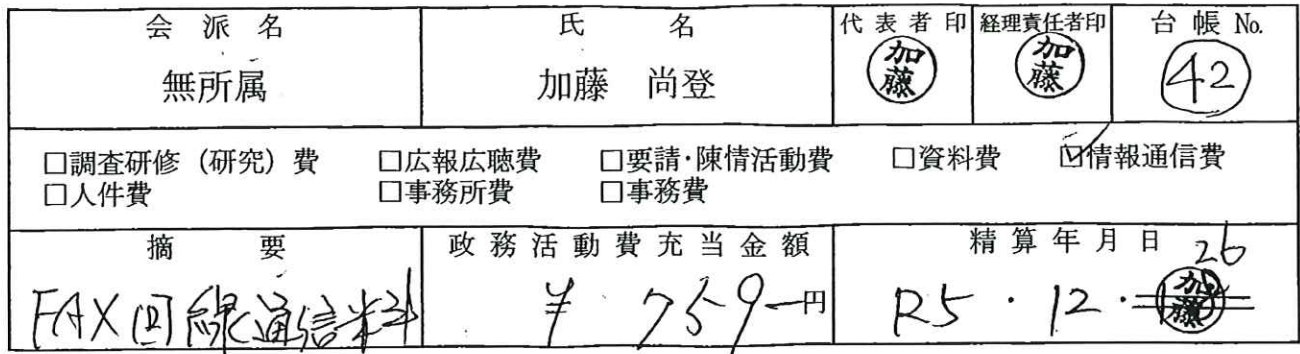 会派名 氏名 代表者印 経理責任者印 台帳 No.
無所属 加藤 尚登 加藤 加藤 42
□調査研修（研究）費 □広報広聴費 □要請・陳情活動費 □資料費 ☑情報通信費
□人件費 □事務所費 □事務費
摘要 政務活動費充当金額 精算年月日
FAX回線通信料 ¥759―円 R5・12・26 加藤